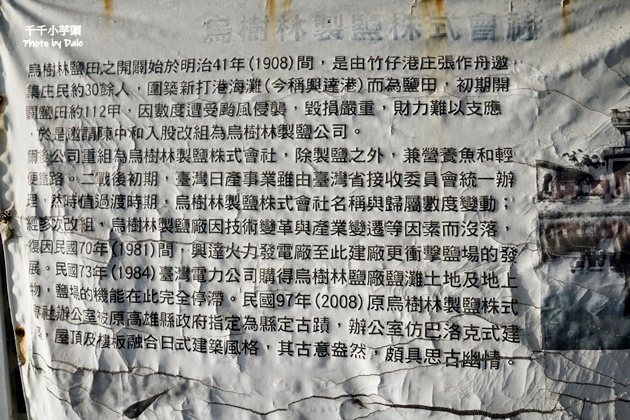 千千小芋頭
Photo by Dale
烏樹林製鹽株式會社
烏樹林鹽田之開闢始於明治41年(1908)間,是由竹仔港庄張作舟邀
集庄民約30餘人,圍築新打港海灘(今稱興達港)而為鹽田,初期開
闢鹽田約112甲,因數度遭受颱風侵襲,毀損嚴重,財力難以支應
,於是邀請陳中和入股改組為烏樹林製鹽公司。
爾後公司重組為烏樹林製鹽株式會社,除製鹽之外,兼營養魚和輕
便鐵路。二戰後初期,臺灣日產事業雖由臺灣省接收委員會統一辦
理,然時值過渡時期,烏樹林製鹽株式會社名稱與歸屬數度變動;
經多次改組,烏樹林製鹽廠因技術變革與產業變遷等因素而沒落,
復因民國70年(1981)間,興達火力發電廠至此建廠更衝擊鹽場的發
展。民國73年(1984)臺灣電力公司購得烏樹林鹽廠鹽灘土地及地上
物,鹽場的機能在此完全停滯。民國97年(2008)原烏樹林製鹽株式
會社辦公室被原高雄縣政府指定為縣定古蹟,辦公室仿巴洛克式建
,屋頂及樓板融合日式建築風格,其古意盎然,頗具思古幽情。